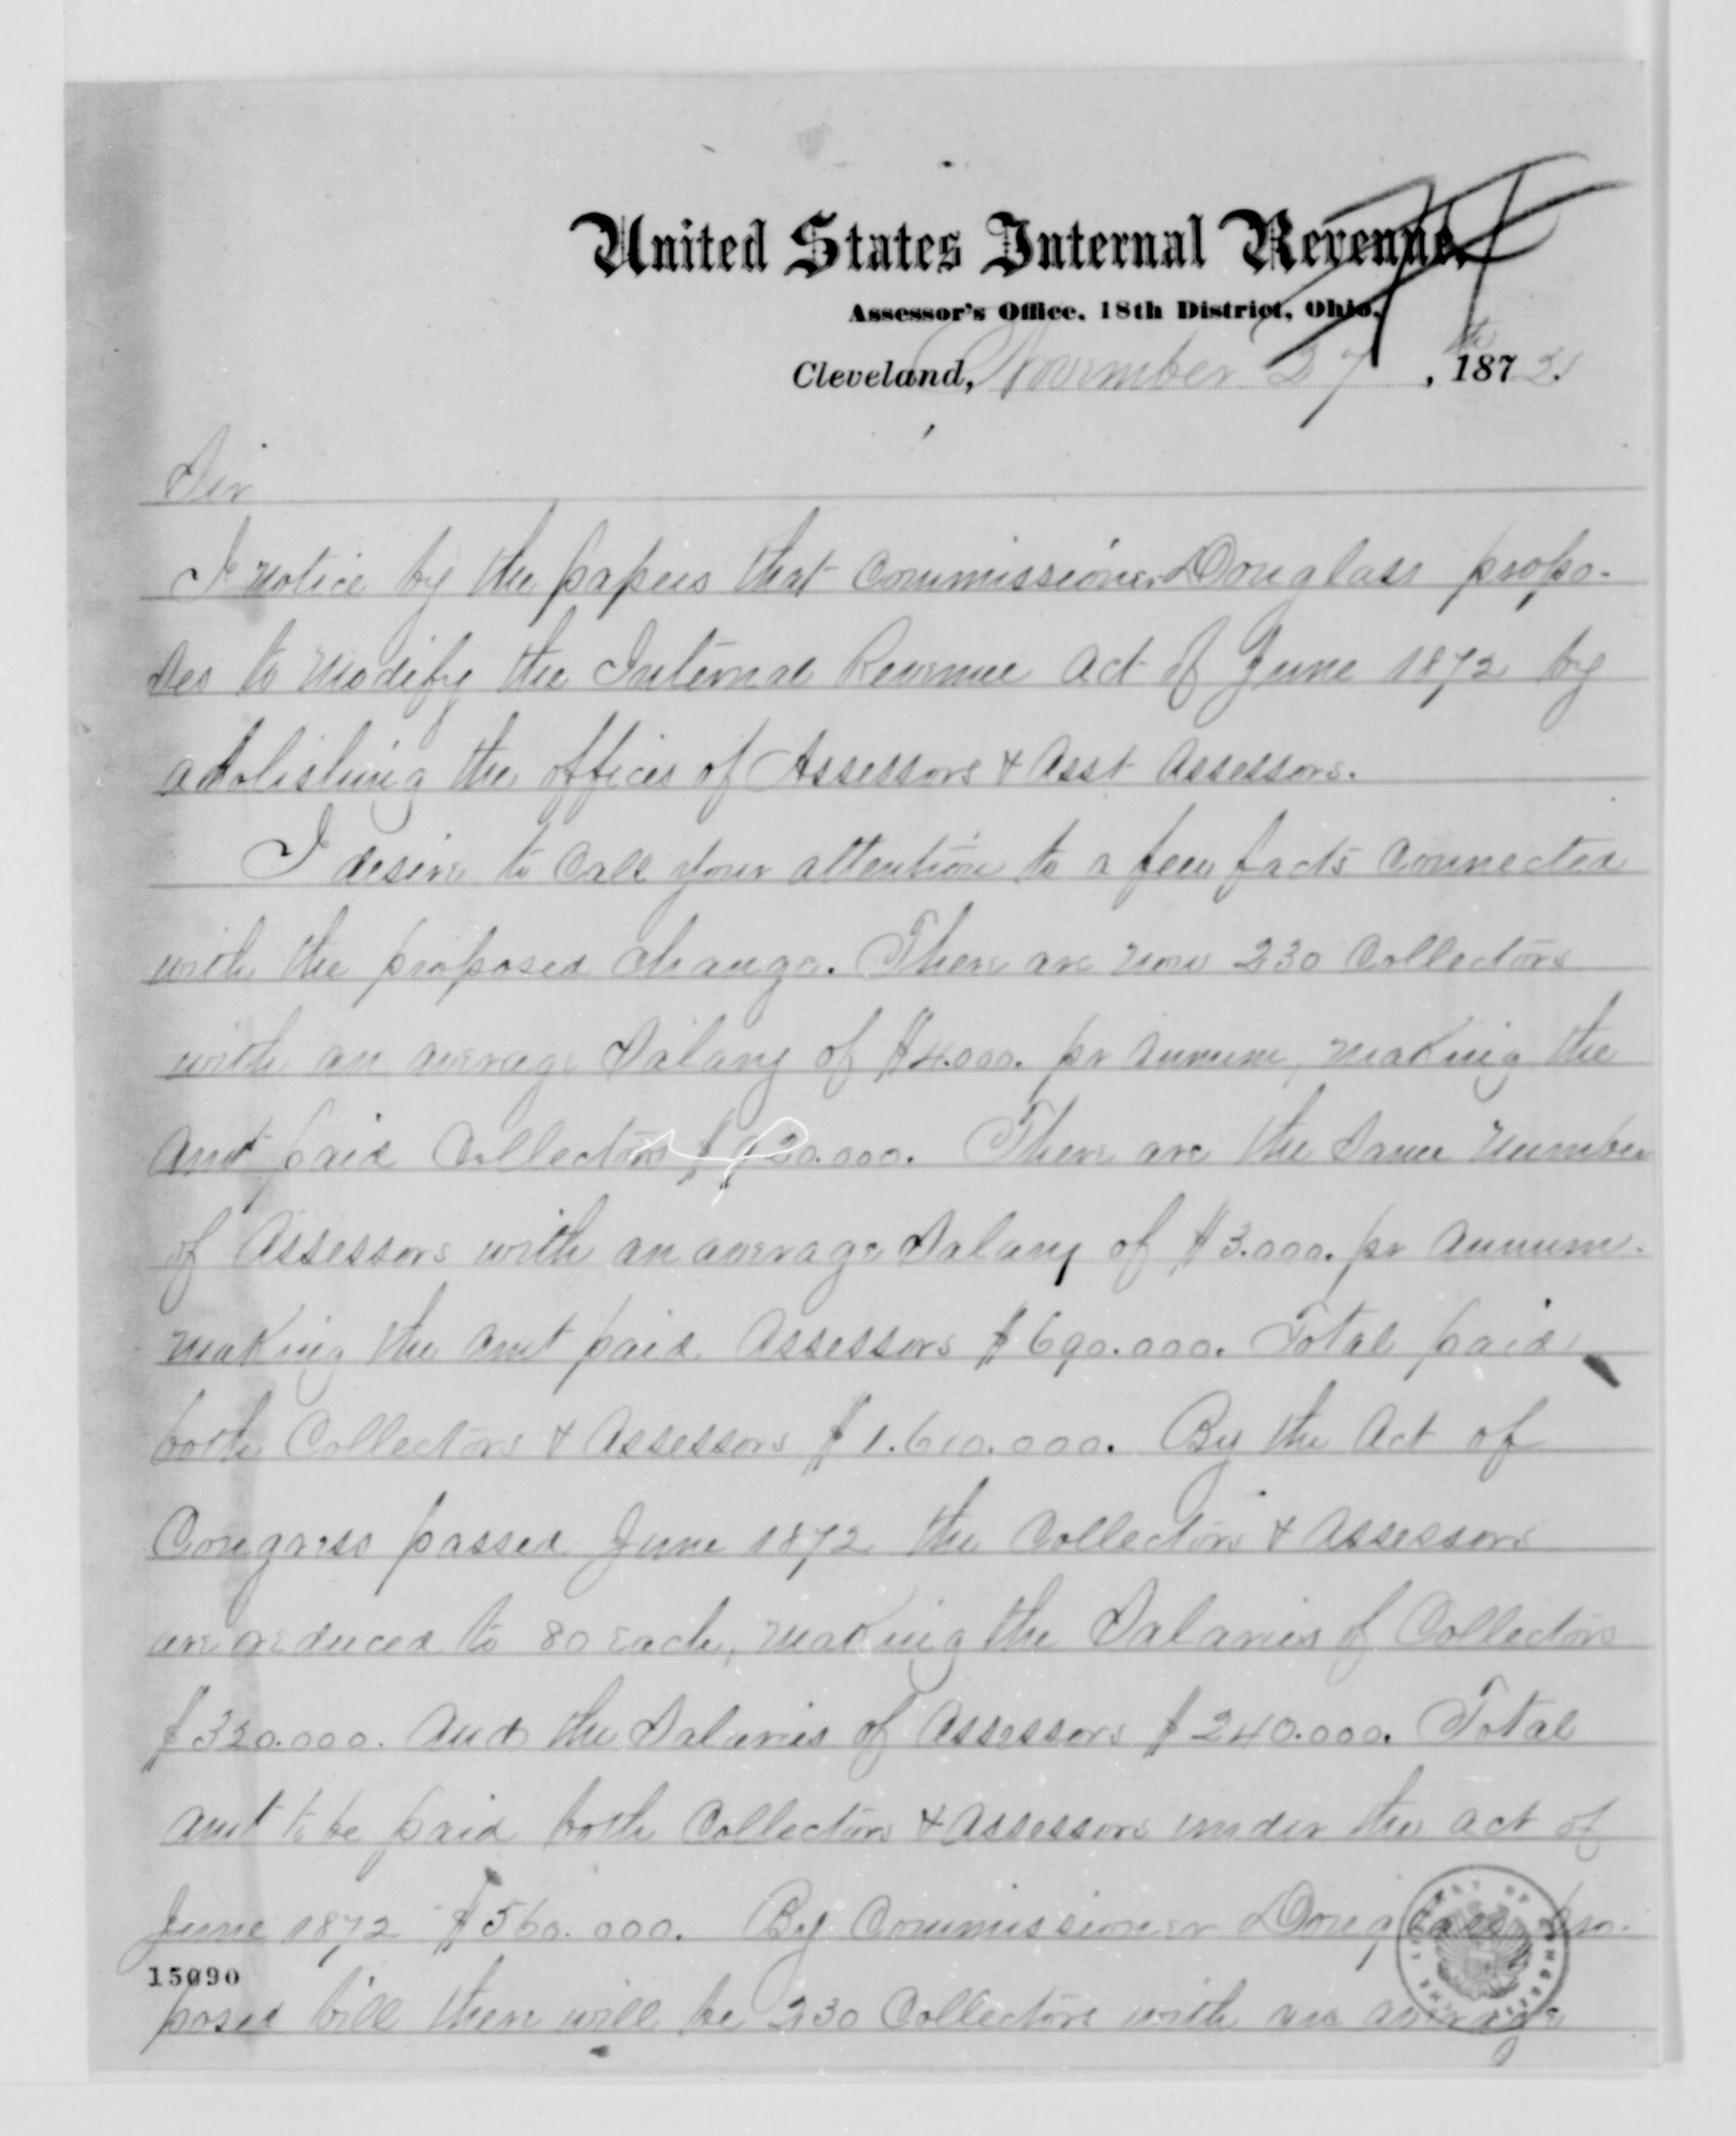 United States Internal Revenue,
Assessor's Office, 18th District, Ohio,
Cleveland, November 27th, 1872.
Sir
I notice by the papers that Commissioner Douglass propo-
ses to modify the Internal Revenue Act of June 1872 by
abolishing the offices of Assessors & Asst Assessors.
I desire to call your attention to a few facts connected
with the proposed change. There are now 230 Collectors
with an average Salary of $4.000. pr annum, making the
amt paid Collectors $920.000. There are the same number
of Assessors with an average Salary of $3.000. pr annum.
making the amt paid Assessors $690.000. Total paid
both Collectors & Assessors $1.610.000. By the Act of
Congress passed June 1872 the Collectors & Assessors
are reduced to 80 each, making the Salaries of Collectors
$320.000. and the Salaries of Assessors $240.000. Total
amt to be paid both Collectors & Assessors under the act of
June 1872 $560.000. By Commissioner Douglass pro-
15090
posed bill there will be 230 Collectors with an average